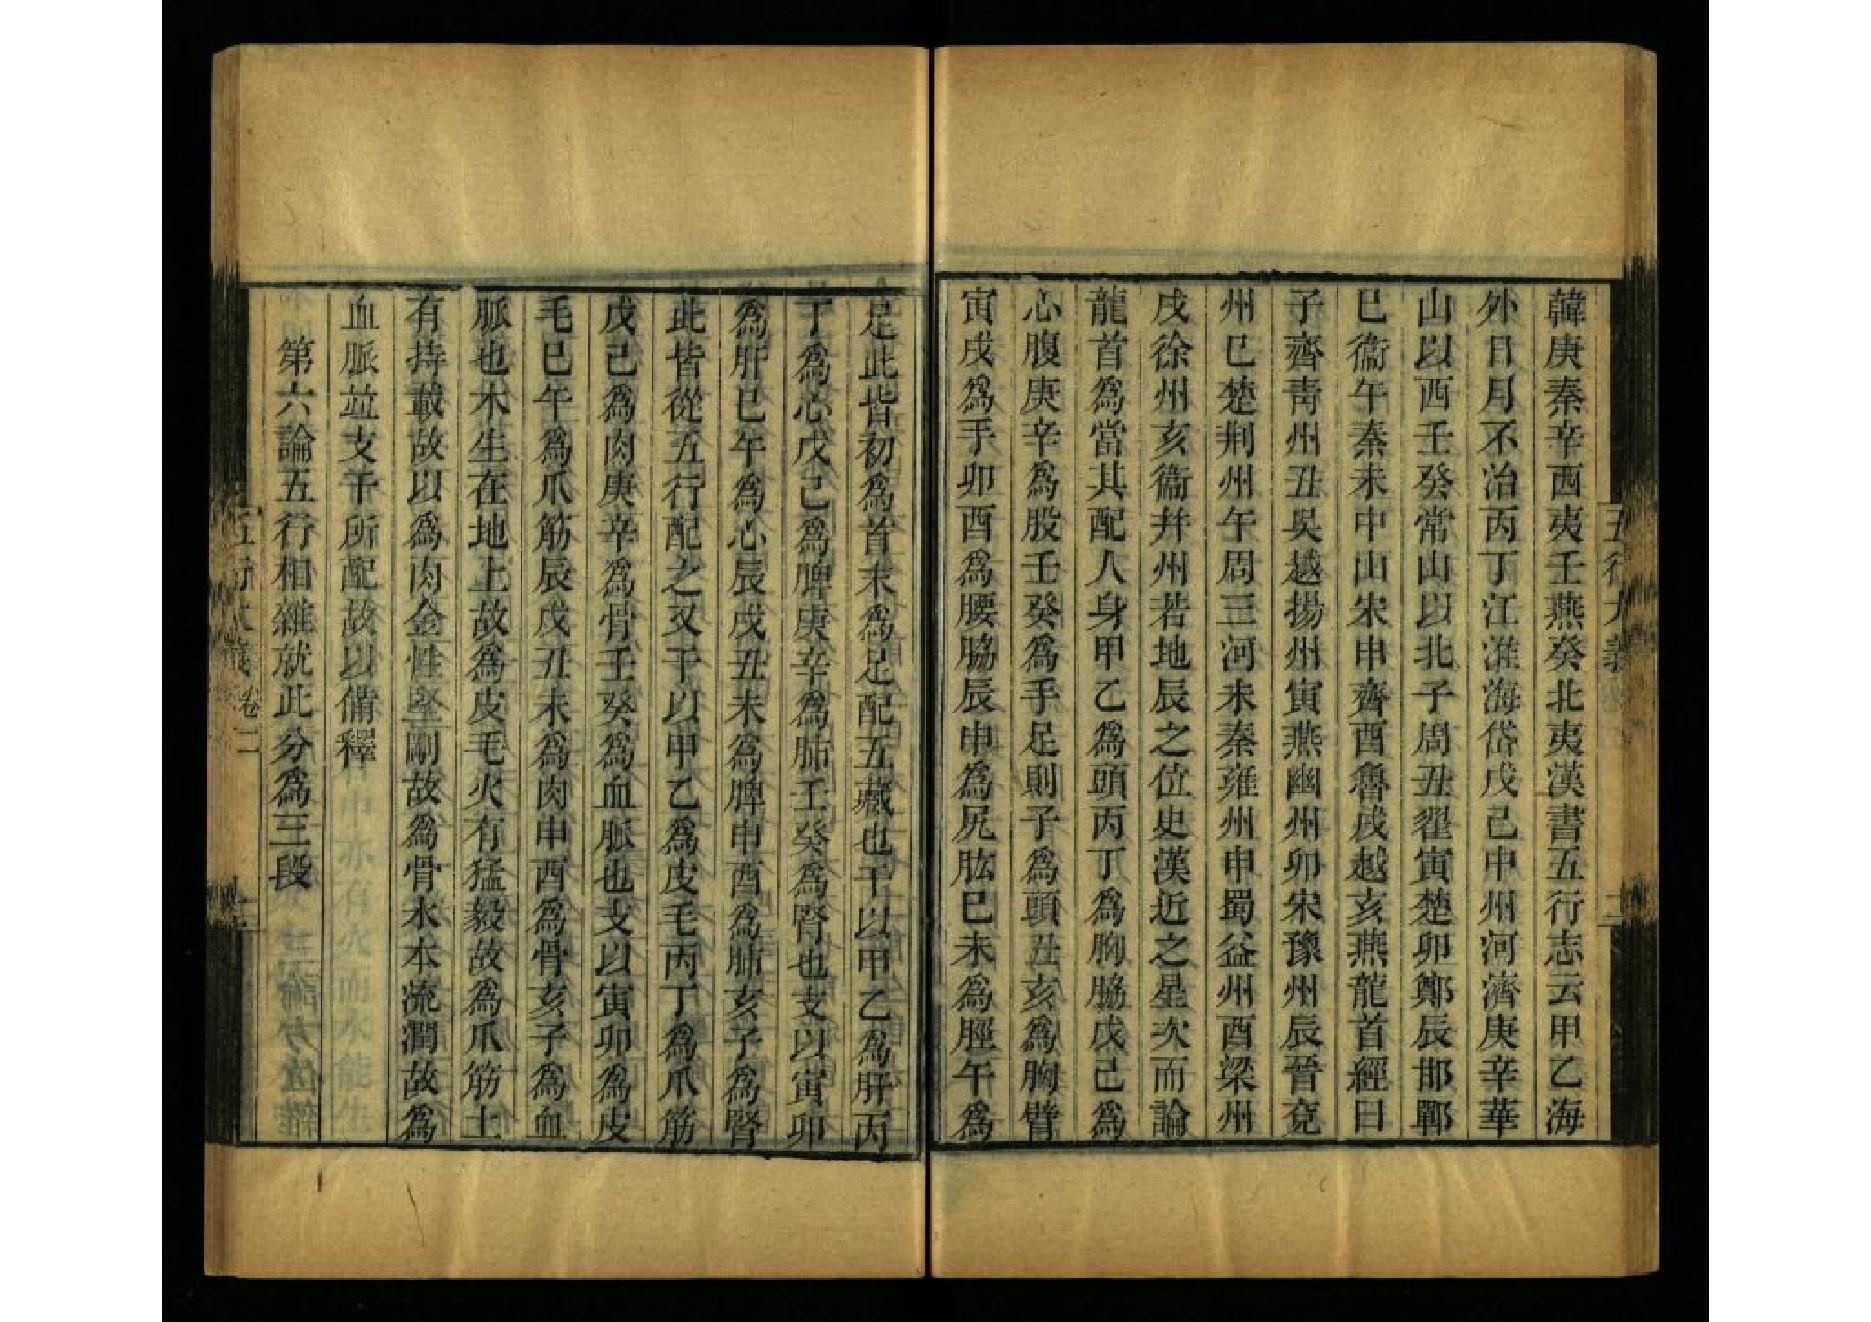 韓庚秦辛西夷壬燕癸北夷漢書五行志云甲乙海
外日月不治丙丁江淮海岱戊己中州河濟庚辛華
山以西壬癸常山以北子周丑翟寅楚卯鄭辰邯鄲
巳衞午秦未中山宋申齊酉魯戌越亥燕龍首經曰
子齊靑州丑吳越揚州寅燕幽州卯宋豫州辰晉兗
州巳楚荆州午周三河未秦雍州申蜀益州酉梁州
戌徐州亥衞幷州若地辰之位史漢近之星次而論
龍首爲當其配人身甲乙爲頭丙丁爲胸脇戊己爲
心腹庚辛爲股壬癸爲手足則子爲頭丑亥爲胸臂
寅戌爲手卯酉爲腰脇辰申爲尻肱巳未爲脛午爲
足此皆初爲首末爲足配五藏也干以甲乙爲肝丙
丁爲心戊己爲脾庚辛爲肺壬癸爲腎也支以寅卯
爲肝巳午爲心辰戌丑未爲脾申酉爲肺亥子爲腎
此皆從五行配之又干以甲乙爲皮毛丙丁爲爪筋
戊己爲肉庚辛爲骨壬癸爲血脈也支以寅卯爲皮
毛巳午爲爪筋辰戌丑未爲肉申酉爲骨亥子爲血
脈也木生在地上故爲皮毛火有猛毅故爲爪筋土
有持載故以爲肉金性堅剛故爲骨水本流潤故爲
血脈竝支干所配故以備釋
第六論五行相雜就此分爲三段
五行大義 卷二